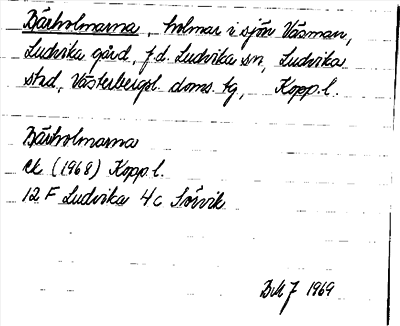 Bärholmarna, holmar i sjön Väsman,
Ludvika gård, f.d. Ludvika sn, Ludvika
stad, Västerbergsl. doms. tg, Kopp. l.
Bärholmarna
ek (1968) Kopp. l.
12 F Ludvika 4c Sörvik
1969